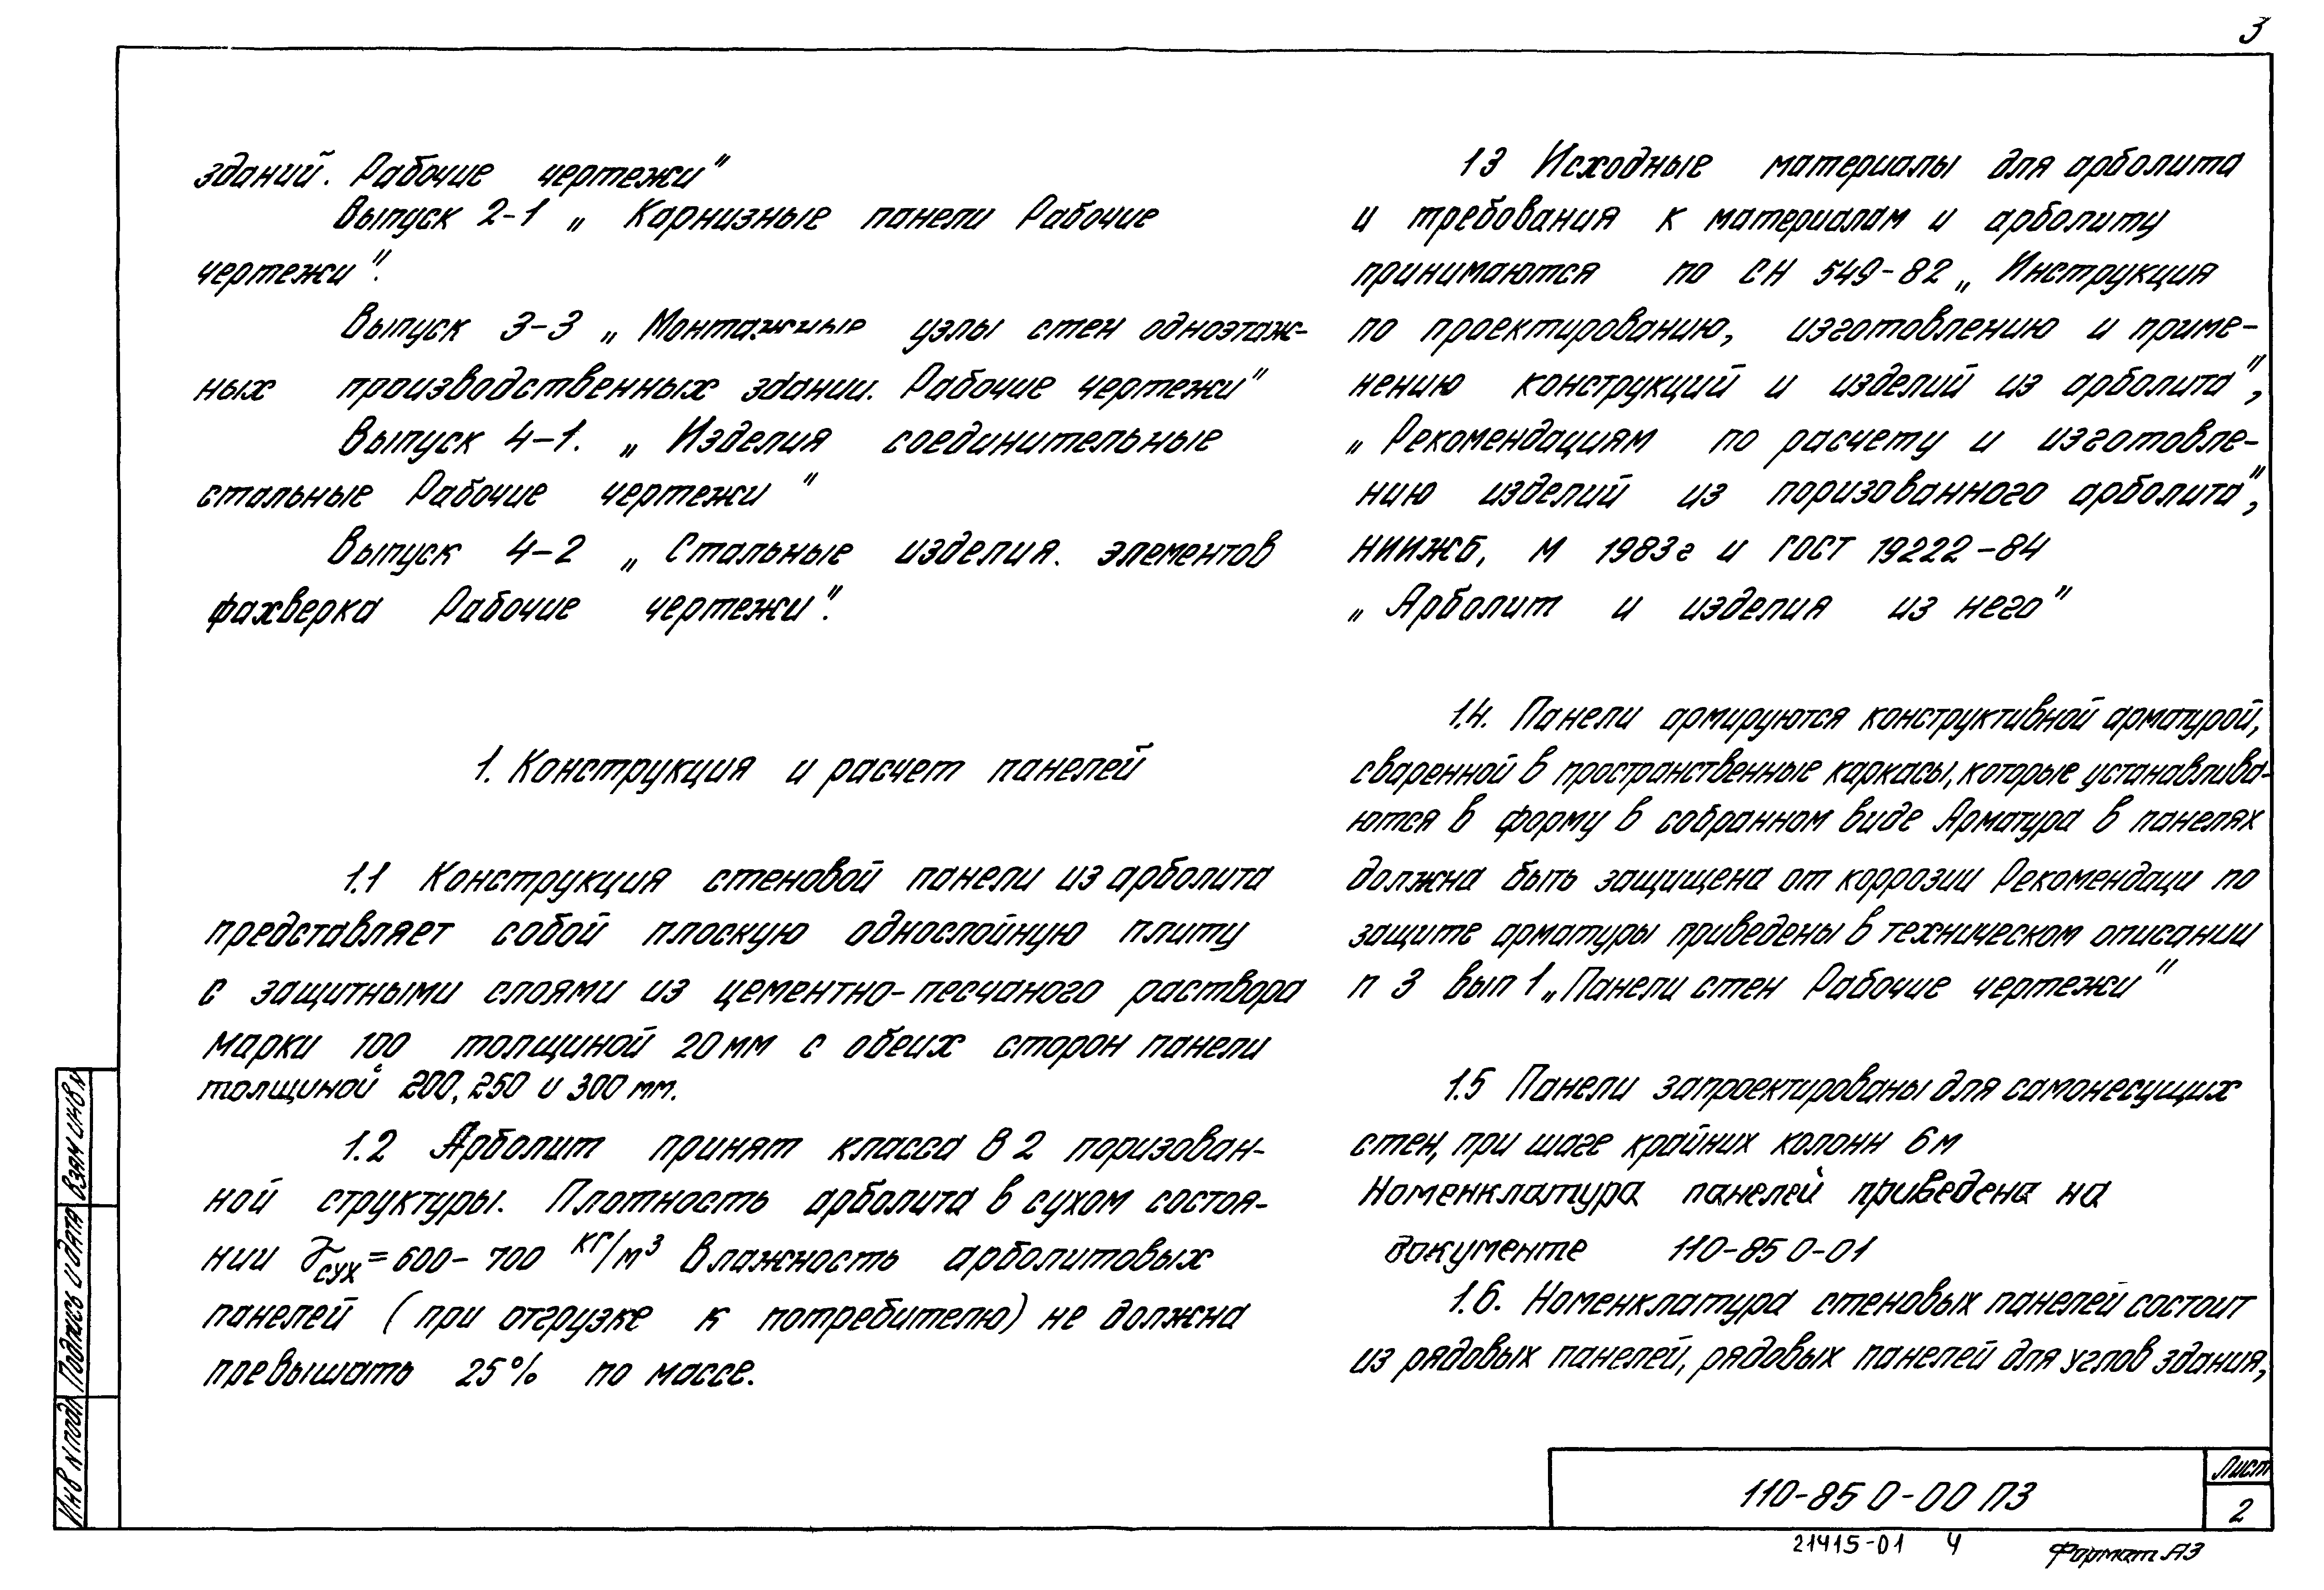 3
зданий. Рабочие чертежи"
Выпуск 2-1 „ Карнизные панели Рабочие
чертежи".
Выпуск 3-3 „ Монтажные узлы стен одноэтаж-
ных производственных здании. Рабочие чертежи"
Выпуск 4-1. „ Изделия соединительные
стальные Рабочие чертежи "
Выпуск 4-2 „ Стальные изделия. элементов
фахверка Рабочие чертежи".
1. Конструкция и расчет панелей
1.1 Конструкция стеновой панели из арболита
представляет собой плоскую однослойную плиту
с защитными слоями из цементно-песчаного раствора
марки 100 толщиной 20 мм с обеих сторон панели
толщиной 200, 250 и 300 мм.
1.2 Арболит принят класса В 2 поризован-
ной структуры. Плотность арболита в сухом состоя-
нии γсух = 600- 700 кг/м³ Влажность арболитовых
панелей ( при отгрузке к потребителю) не должна
превышать 25% по массе.
13 Исходные материалы для арболита
и требования к материалам и арболиту
принимаются по СН 549-82 „ Инструкция
по проектированию, изготовлению и приме-
нению конструкций и изделий из арболита",
„ Рекомендациям по расчету и изготовле-
нию изделий из поризованного арболита",
НИИЖБ, М 1983г и ГОСТ 19222-84
„ Арболит и изделия из него"
1.4. Панели армируются конструктивной арматурой,
сваренной в пространственные каркасы, которые устанавлива-
ются в форму в собранном виде Арматура в панелях
должна быть защищена от коррозии Рекомендаци по
защите арматуры приведены в техническом описании
п 3 вып 1 „Панели стен Рабочие чертежи"
1.5 Панели запроектированы для самонесущих
стен, при шаге крайних колонн 6 м
Номенклатура панелей приведена на
документе 110-85 0-01
1.6. Номенклатура стеновых панелей состоит
из рядовых панелей, рядовых панелей для углов здания,
Взам инв N
Подпись и дата
Инв N подл
110-85 0-00 ПЗ
Лист
2
21415-01 4
Формат А3